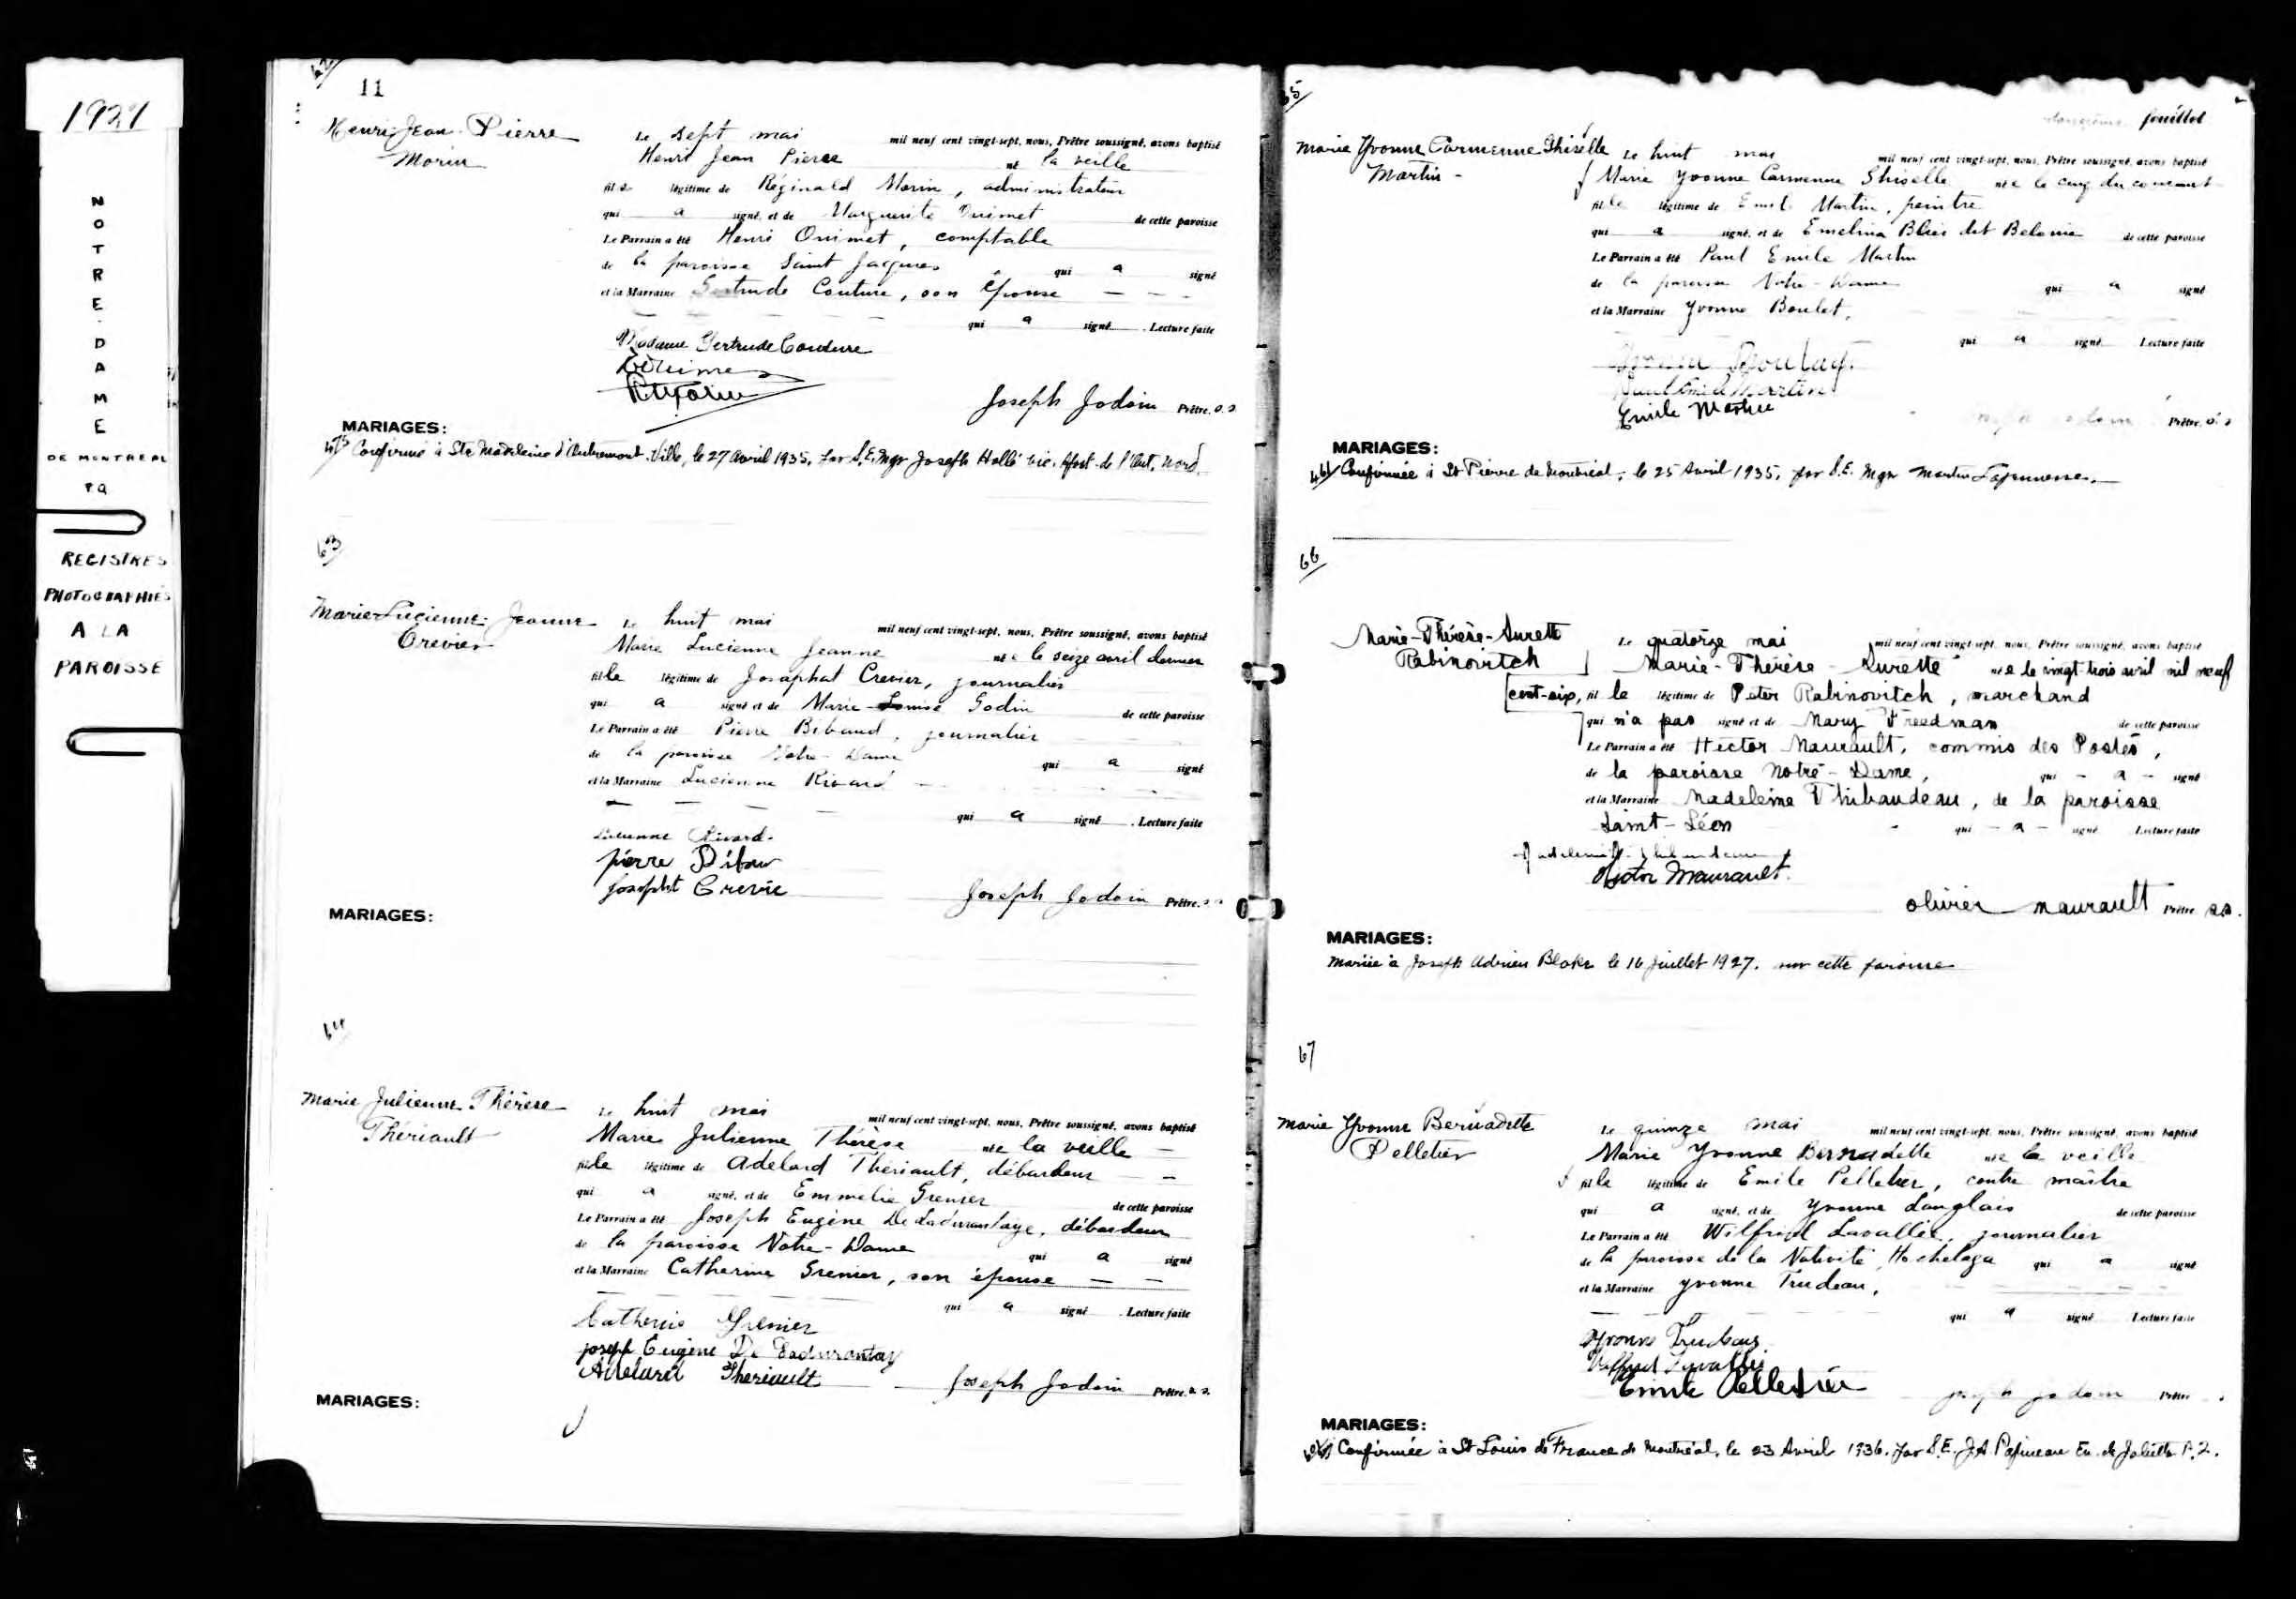 1927
NOTRE-DAME
DE MONTREAL
P.Q
REGISTRES
PHOTOGRAPHIÉS
A LA
PAROISSE
62
11
Henri Jean Pierre
Morin
Le sept mai mil neuf cent vingt-sept, nous, Prêtre soussigné, avons baptisé
Henri Jean Pierre né la veille
fils légitime de Réginald Morin, administrateur
qui a signé, et de Marguerite Ouimet de cette paroisse
Le Parrain a été Henri Ouimet, comptable
de la paroisse Saint Jacques qui a signé
et la Marraine Gertrude Couture, son épouse
qui a signé. Lecture faite
Madame Gertrude Couture
Joseph Jodoin Prêtre. s.s
MARIAGES:
Confirmé à Ste Madeleine d'Outremont. Ville, le 27 avril 1935, par S.E. Mgr Joseph Hallé vic. Apost. de l'Ont. Nord.
63
Marie Lucienne Jeanne
Crevier
Le huit mai mil neuf cent vingt-sept, nous, Prêtre soussigné, avons baptisé
Marie Lucienne Jeanne née le seize avril dernier
fille légitime de Josaphat Crevier, journalier
qui a signé et de Marie-Louise Godin de cette paroisse
Le Parrain a été Pierre Bibaud, journalier
de la paroisse Notre-Dame qui a signé
et la Marraine Lucienne Rivard
qui a signé. Lecture faite
Lucienne Rivard.
pierre Bibau
Josapht Crevie
Joseph Jodoin Prêtre. s.s
MARIAGES:
64
Marie Julienne Thérèse
Thériault
Le huit mai mil neuf cent vingt-sept, nous, Prêtre soussigné, avons baptisé
Marie Julienne Thérèse née la veille
fille légitime de Adelard Thériault, débardeur
qui a signé, et de Emmelie Grenier de cette paroisse
Le Parrain a été Joseph Eugène De Ladurantaye, débardeur
de la paroisse Notre-Dame qui a signé
et la Marraine Catherine Grenier, son épouse
qui a signé. Lecture faite
Catherine Grenier
joseph Eugène De Ladurantay
Adelard Theriault
Joseph Jodoin Prêtre. s.s.
MARIAGES:
65
feuillet
Marie Yvonne Carmenne Ghiselle
Martin
Le huit mai mil neuf cent vingt-sept, nous, Prêtre soussigné, avons baptisé
Marie Yvonne Carmenne Ghiselle née le cinq du courant
fille légitime de Emile Martin, peintre
qui a signé, et de Emelina Blais dit Belonie de cette paroisse
Le Parrain a été Paul Emile Martin
de la paroisse Notre-Dame qui a signé
et la Marraine Yvonne Boulet,
qui a signé Lecture faite
Paul Emile Martin
Emile Martin
Prêtre. s.s
MARIAGES:
Confirmée à St Pierre de Montréal, le 25 Avril 1935, par S.E. Mgr Martin Lajeunesse.
66
Marie-Thérèse-Surette
Rabinovitch
Le quatorze mai mil neuf cent vingt-sept, nous, Prêtre soussigné, avons baptisé
Marie-Thérèse-Surette née le vingt-trois avril mil neuf
cent-six, fille légitime de Peter Rabinovitch, marchand
qui n'a pas signé et de Mary Freedman de cette paroisse
Le Parrain a été Hector Maurault, commis des Postes,
de la paroisse Notre-Dame, qui - a - signé
et la Marraine Madeleine Thibaudeau, de la paroisse
Saint-Léon qui - a - signé Lecture faite
Madeleine Thibaudeau
Hector Maurault.
Olivier Maurault Prêtre s.s.
MARIAGES:
Mariée à Joseph Adrien Blake le 16 juillet 1927. en cette paroisse
67
Marie Yvonne Bernadette
Pelletier
Le quinze mai mil neuf cent vingt-sept, nous, Prêtre soussigné, avons baptisé
Marie Yvonne Bernadette née la veille
fille légitime de Emile Pelletier, contre maître
qui a signé, et de Yvonne Langlais de cette paroisse
Le Parrain a été Wilfrid Lavallée, journalier
de la paroisse de la Nativité Hochelaga qui a signé
et la Marraine Yvonne Trudeau,
qui a signé Lecture faite
Yvonne Trudeau
Wilfrid Lavallée
Emile Pelletier
Joseph Jodoin Prêtre
MARIAGES:
Confirmée à St Louis de France de Montréal, le 23 Avril 1936. par S.E. J.A. Papineau Ev. de Joliette P.Q.